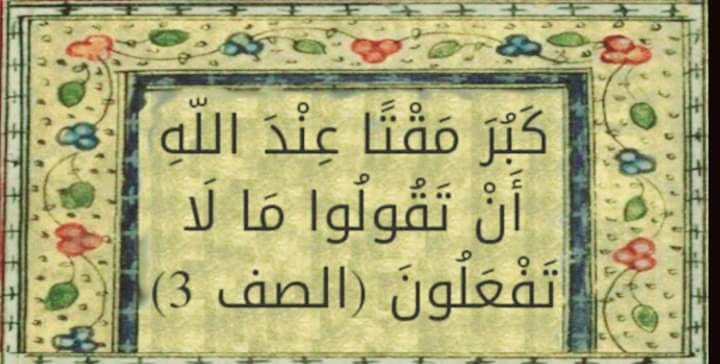 كَبُرَ مَقْتًا عِنْدَ اللّهِ
أَنْ تَقُولُوا مَا لَا
تَفْعَلُونَ (الصف 3)